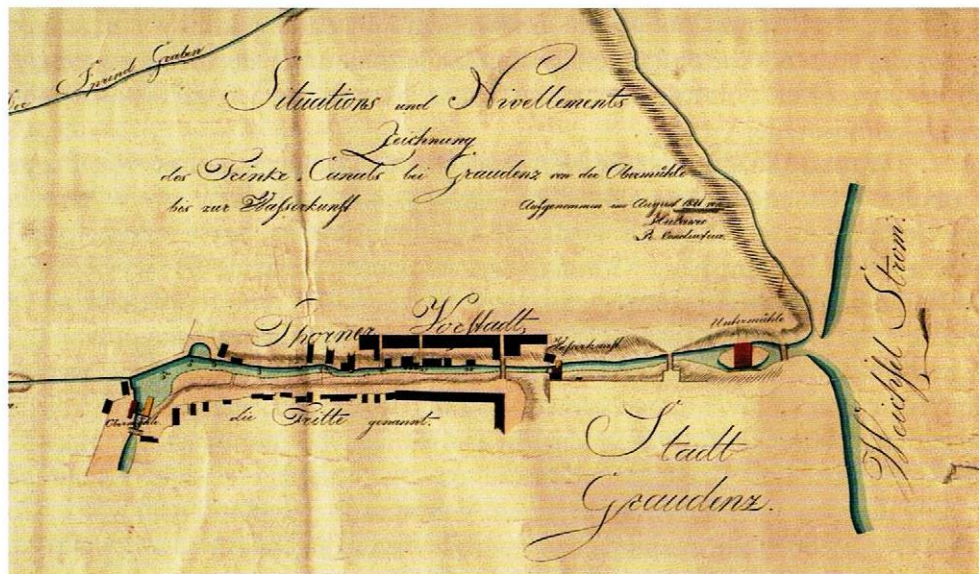 Der Sprind Graben
Situations und Nivellements
Zeichnung
des Trinke Canals bei Graudenz von der Obermühle
bis zur Waſserkunſt
Aufgenommen im August 1821
Thorner Vorſtadt
Waſserkunſt
Untermühle
Weichſel Strom:
Obermühle
die Tritte genannt.
Stadt
Graudenz.